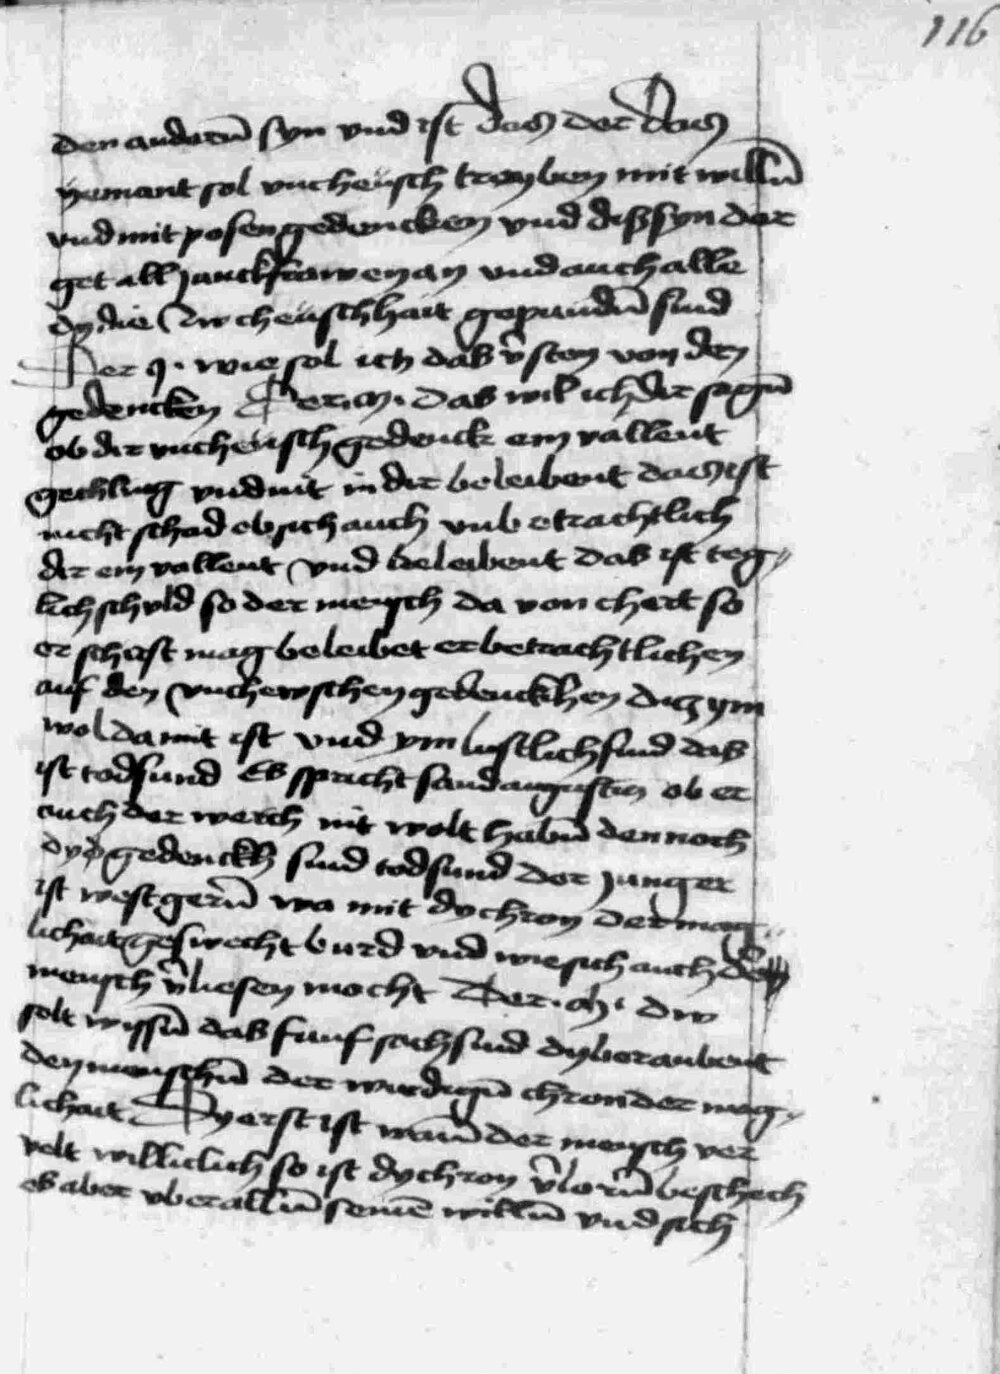 116
den anderñ syn vnd ist das der das
yemant sol vncheusch treyben mit willñ
vnd mit posen gedencken vnd diß syn der
get all Junckfrawen an vnd auch alle
dy die zw cheuschhait gepundñ sind
Der J· wie sol ich das v̄sten von den
gedencken Der·m· das wil ich dir sagñ
ob dir vncheusch gedenck ein vallent
gechling vnd nit in dir beleibent das ist
nicht schad ob sich auch vnbetrachtlich
dir ein vallent vnd beleibent das ist teg〃
lich schuld so der mensch da von chert so
er schirst mag beleibet er betrachtlichen
auf den vnchewschen gedenckhen daz ym
wol da mit ist vnd ym lustlich sind das
ist todsund Es spricht sand augustin ob er
auch der werch nit wolt habñ dennoch
dye gedenckh sind todsund Der Junger
ist west gerñ wa mit dy chron der mag〃
lichait geswecht burd vnd wie sich auch der
mensch v̄liesen mocht Der·m· dw
solt wissñ das funf sach sind dy beraubent
den menschñ der wirdigñ chron der mag〃
lichait Dy erst ist wañ der mensch ver
velt williclich so ist dy chron v̄lorñ beschech
es aber vber allñ seinē willñ vnd sich